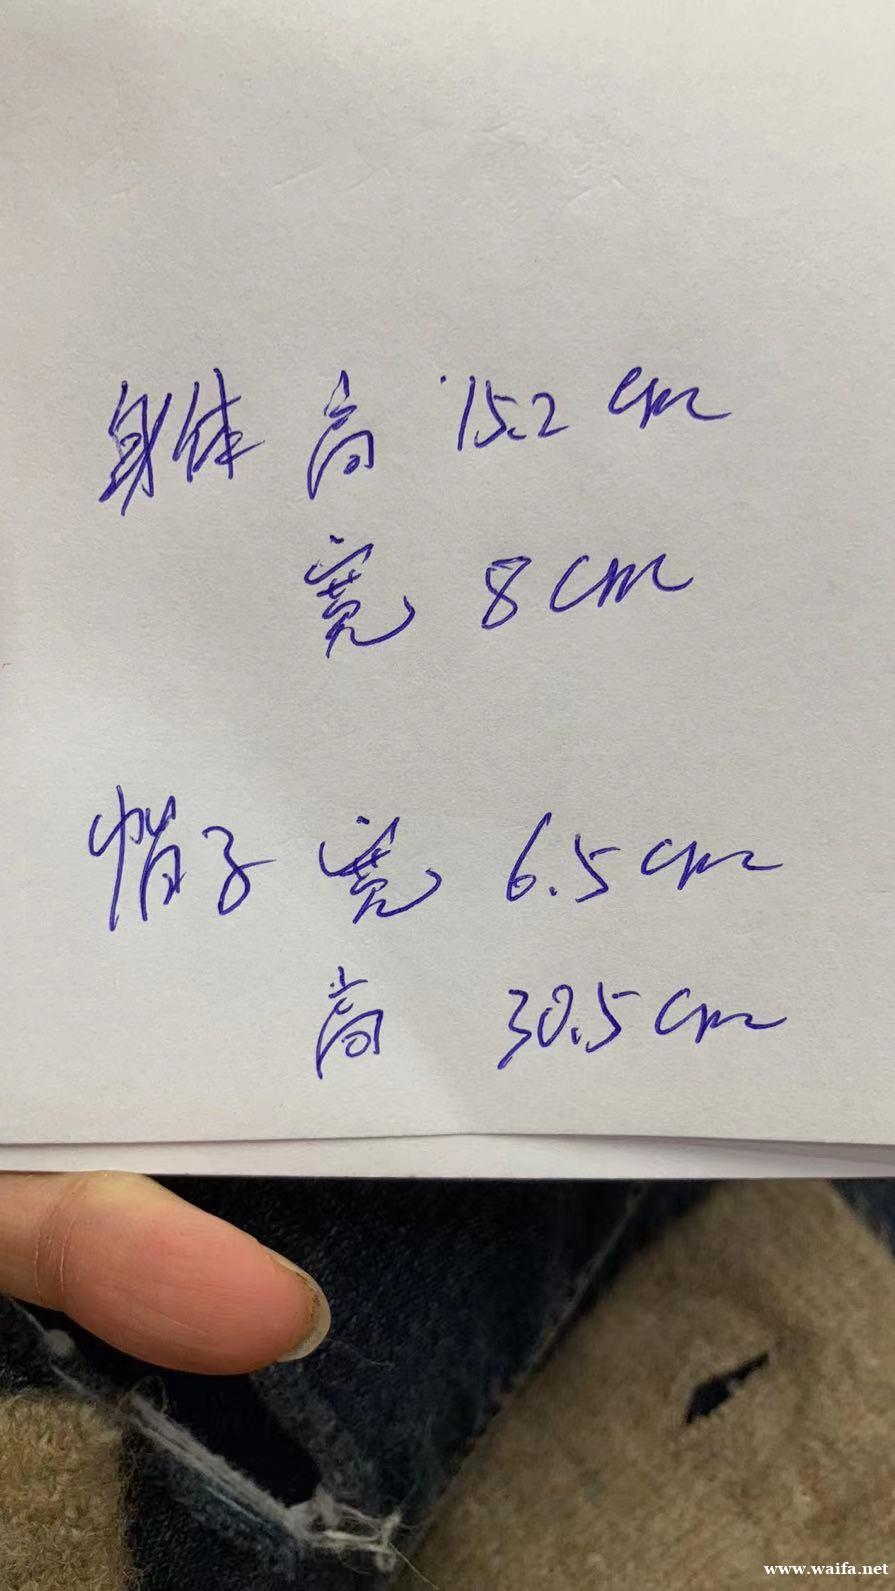 身体 高 15.2 cm
宽 8 cm
帽子 宽 6.5 cm
高 30.5 cm
www.waifa.net